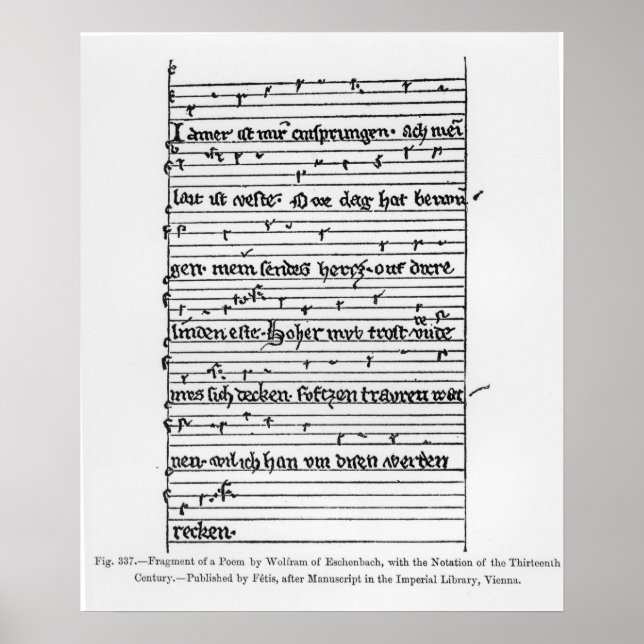 Iamer ist mir̃ entsprungen. Ach mei
lait ist veste. O we dag hat benom̃
gen. mein sendes hercz. ouf dirre
linden este. Hoher mvt trost vnde
mvs sich decken. softzen trauren wac
nen. wil ich han vm disen werden
recken.
Fig. 337.—Fragment of a Poem by Wolfram of Eschenbach, with the Notation of the Thirteenth
Century.—Published by Fétis, after Manuscript in the Imperial Library, Vienna.